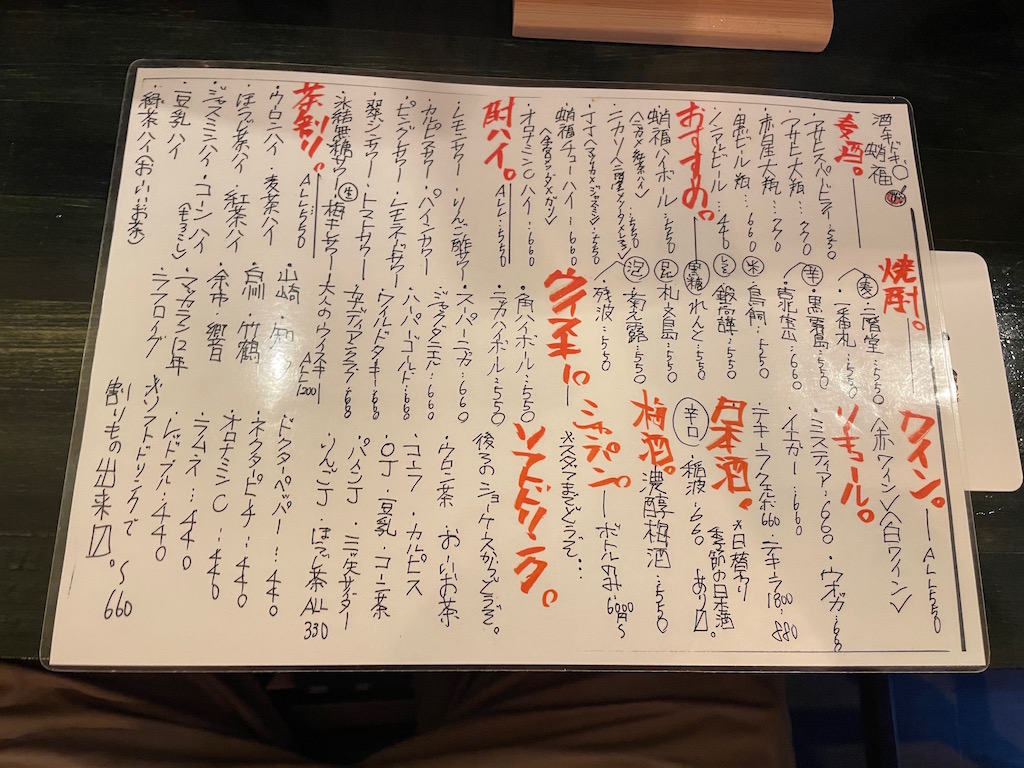 酒　蛸福
麦酒。
・アサヒスーパードライ…550
・アサヒ大瓶…770
・赤星大瓶…770
・黒ビール瓶…660
・ノンアルビール…440
おすすめ。
蛸福ハイボール…550
・オロナミンCハイ…660
酎ハイ。ALL…550
・レモンサワー・りんご酢サワー
・カルピスサワー・パインサワー
・ピングレサワー・レモネードサワー
・翠ジンサワー・トマトサワー
・氷結無糖サワー・生梅干しサワー
茶割り。ALL…550
・ウーロンハイ・麦茶ハイ
・ほうじ茶ハイ・紅茶ハイ
・ジャスミンハイ・コーンハイ
・豆乳ハイ
・緑茶ハイ(おーいお茶)
焼酎。
麦
二階堂…550
・一番札…550
芋
・黒霧島…550
米
・鳥飼…550
・鍛高譚…550
黒糖
れんと…550
昆
・札文島…550
泡
・菊之露…550
・残波…550
ウイスキー。
・角ハイボール…550
・ニッカハイボール…550
・スーパーニッカ…660
・ジャックダニエル…660
・ハーパーゴールド…660
・ワイルドターキー…660
・大人のウイスキー ALL1200
山崎・知多
・白州・竹鶴
余市・響
・マッカラン12年
・ラフロイグ
ワイン。ALL550
〈赤ワイン〉〈白ワイン〉
リキュール。
・ミスティア…660・ウォッカ…660
・イエガー…660
日本酒。
※日替わり
季節の日本酒
あり〼。
辛口
・稲波…660
梅酒。
濃醇梅酒…550
シャンパン ボトルのみ6000円〜
※スタッフまでどうぞ…
ソフトドリンク。
後ろのショーケースからどうぞ。
ウーロン茶・おーいお茶
・コーラ・カルピス
・OJ・豆乳・コーン茶
・パインJ・三ツ矢サイダー
・りんごJ・ほうじ茶 ALL330
・ドクターペッパー…440
・ネクターピーチ…440
・オロナミンC…440
・ラムネ…440
・レッドブル…440
※ソフトドリンクで
割りもの出来〼。〜660